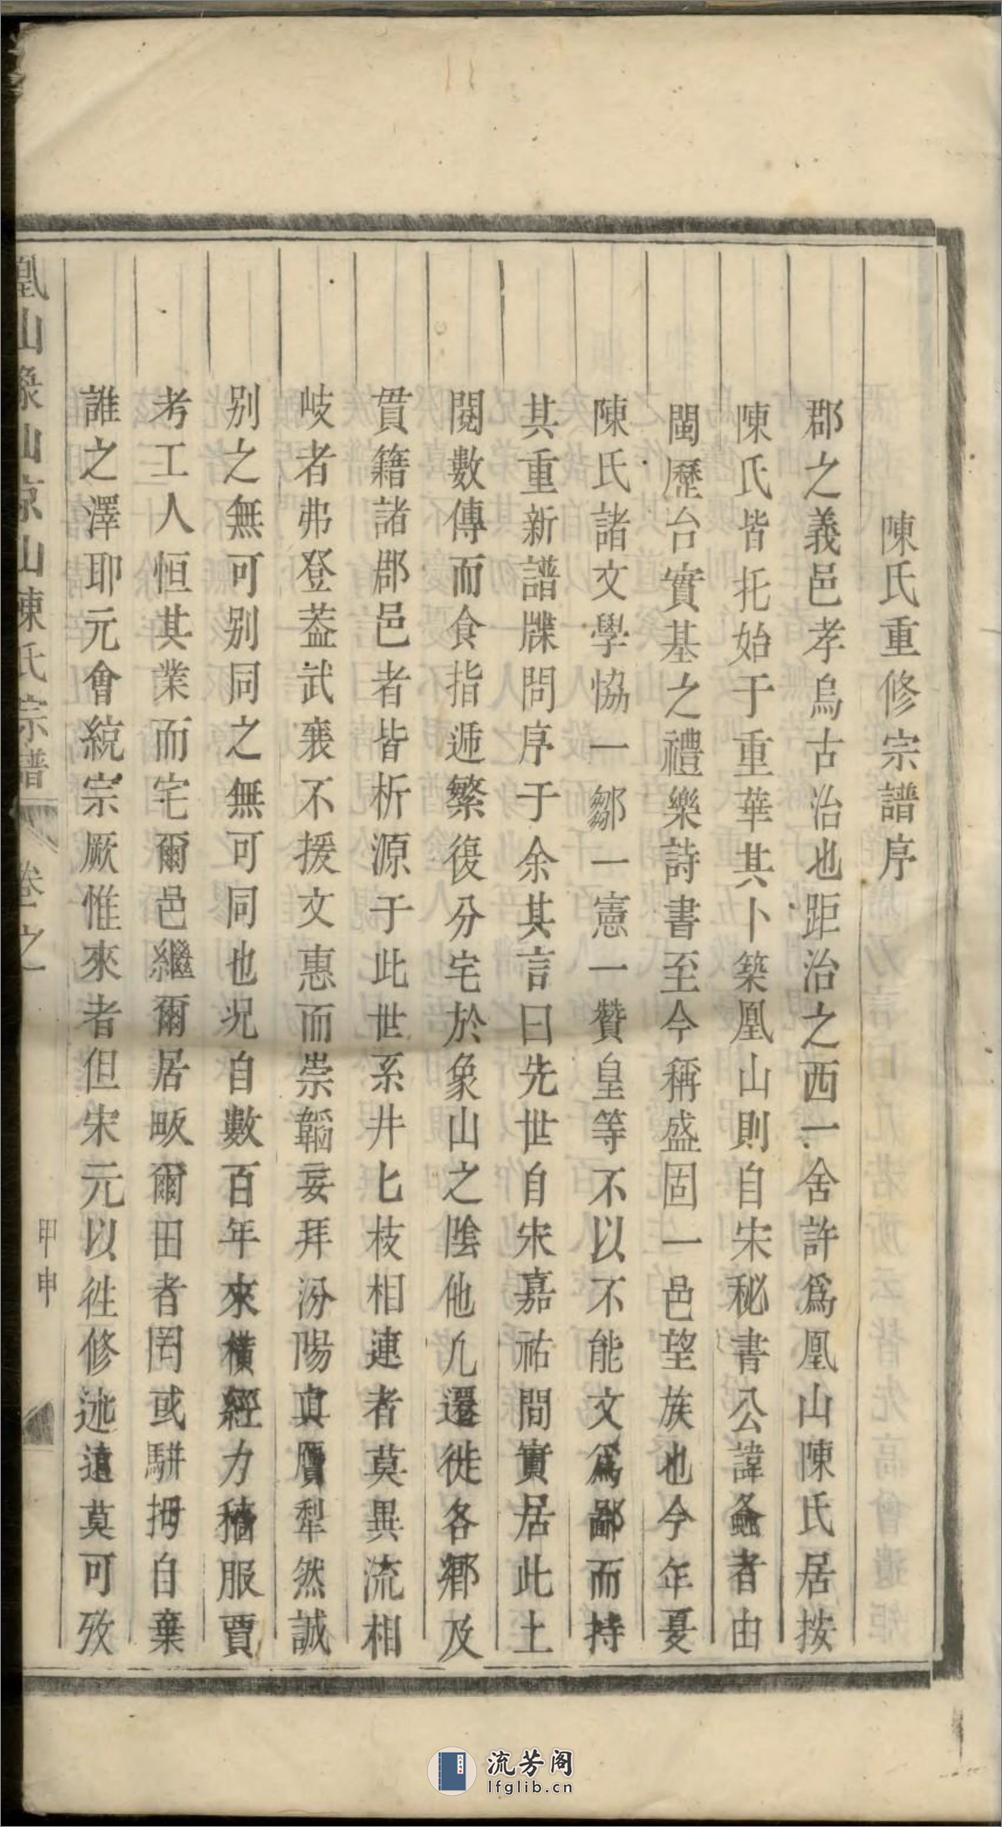 陳氏重修宗譜序
郡之義邑孝烏古治也距治之西一舍許爲凰山陳氏居按
陳氏皆托始于重華其卜築凰山則自宋秘書公諱鱻者由
閩歷台實基之禮樂詩書至今稱盛固一邑望族也今年夏
陳氏諸文學恊一鄒一憲一贊皇等不以不能文爲鄙而持
其重新譜牒問序于余其言曰先世自宋嘉祐間實居此土
閱數傳而食指遞繁復分宅於象山之陰他凢遷徙各鄉及
貫籍諸郡邑者皆析源于此世系井匕枝相連者莫異流相
岐者弗登葢武襄不援文惠而崇韜妄拜汾陽真贋犁然誠
别之無可别同之無可同也况自數百年來横經力穡服賈
考工人恒其業而宅爾邑繼爾居畈爾田者罔或駢拇自棄
誰之澤耶元會綂宗厥惟來者但宋元以徃修迯遠莫可攷
凰山象山京山陳氏宗譜
卷之一
甲申
流芳阁
lfglib.cn